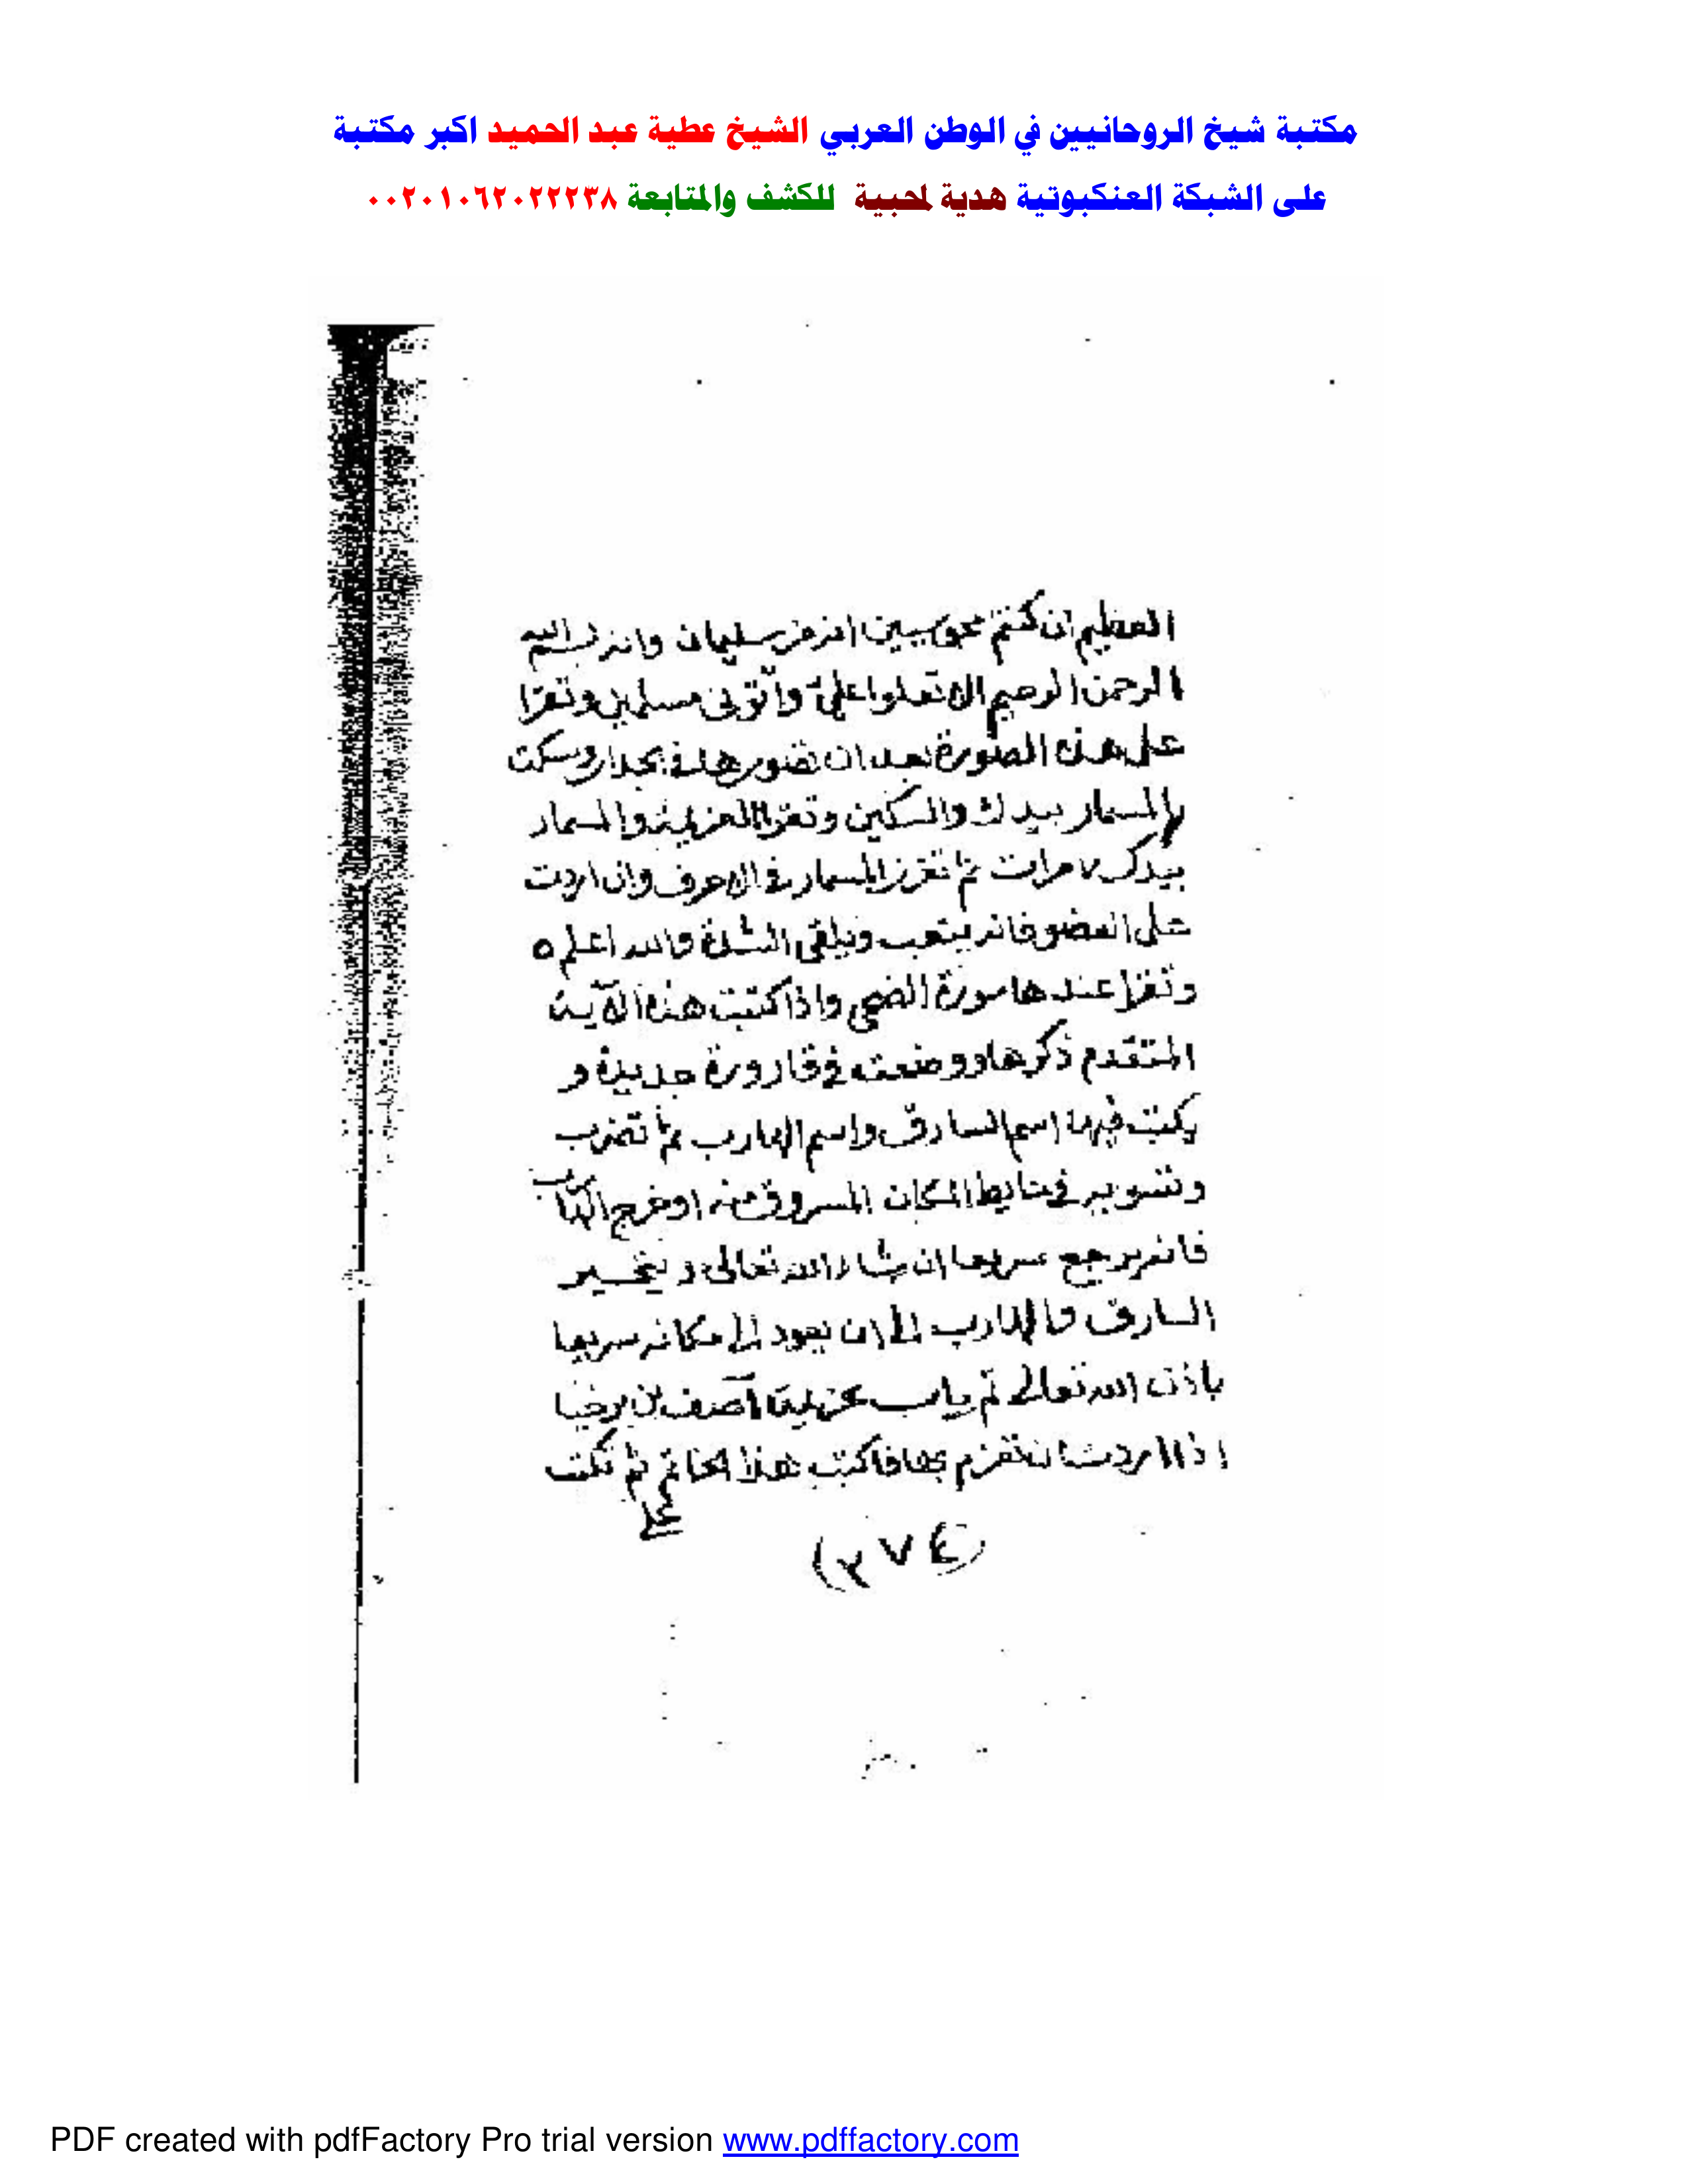 مكتبة شيخ الروحانيين في الوطن العربي الشيخ عطية عبد الحميد اكبر مكتبة
على الشبكة العنكبوتية هدية لمحبية للكشف والمتابعة ٠٠٢٠١٠٦٢٠٢٢٢٣٨
العظيم ان كنتم انه من سليمان وانه بسم
الرحمن الرحيم الا تعلوا علي وأتوني مسلمين وتقرا
على هذه الصورة بعد ان تصورها في جدار
بالمسمار بيدك والسكين وتقرا العزيمة والمسمار
بيدك ٧ مرات ثم تغرز المسمار في الاحرف وان اردت
على العضو فانه يتعب ويلقى الشدة والله اعلم ه
وتقرا عندها سورة الضحى واذا كتبت هذه الآية
المتقدم ذكرها ووضعته في قارورة جديدة و
يكتب فيها اسم السارق واسم الهارب ثم تضرب
في حايط المكان المسروق منه اوخرج الهارب
فانه يرجع سريعا ان شاء الله تعالى و
السارق والهارب الى ان يعود الى مكانه سريعا
باذن الله تعالى تم باب عزيمة آصف بن برخيا
اذا اردت ان تعزم بها فاكتب هذا الخاتم ثم تكتب
(٢٧٤)
PDF created with pdfFactory Pro trial version www.pdffactory.com